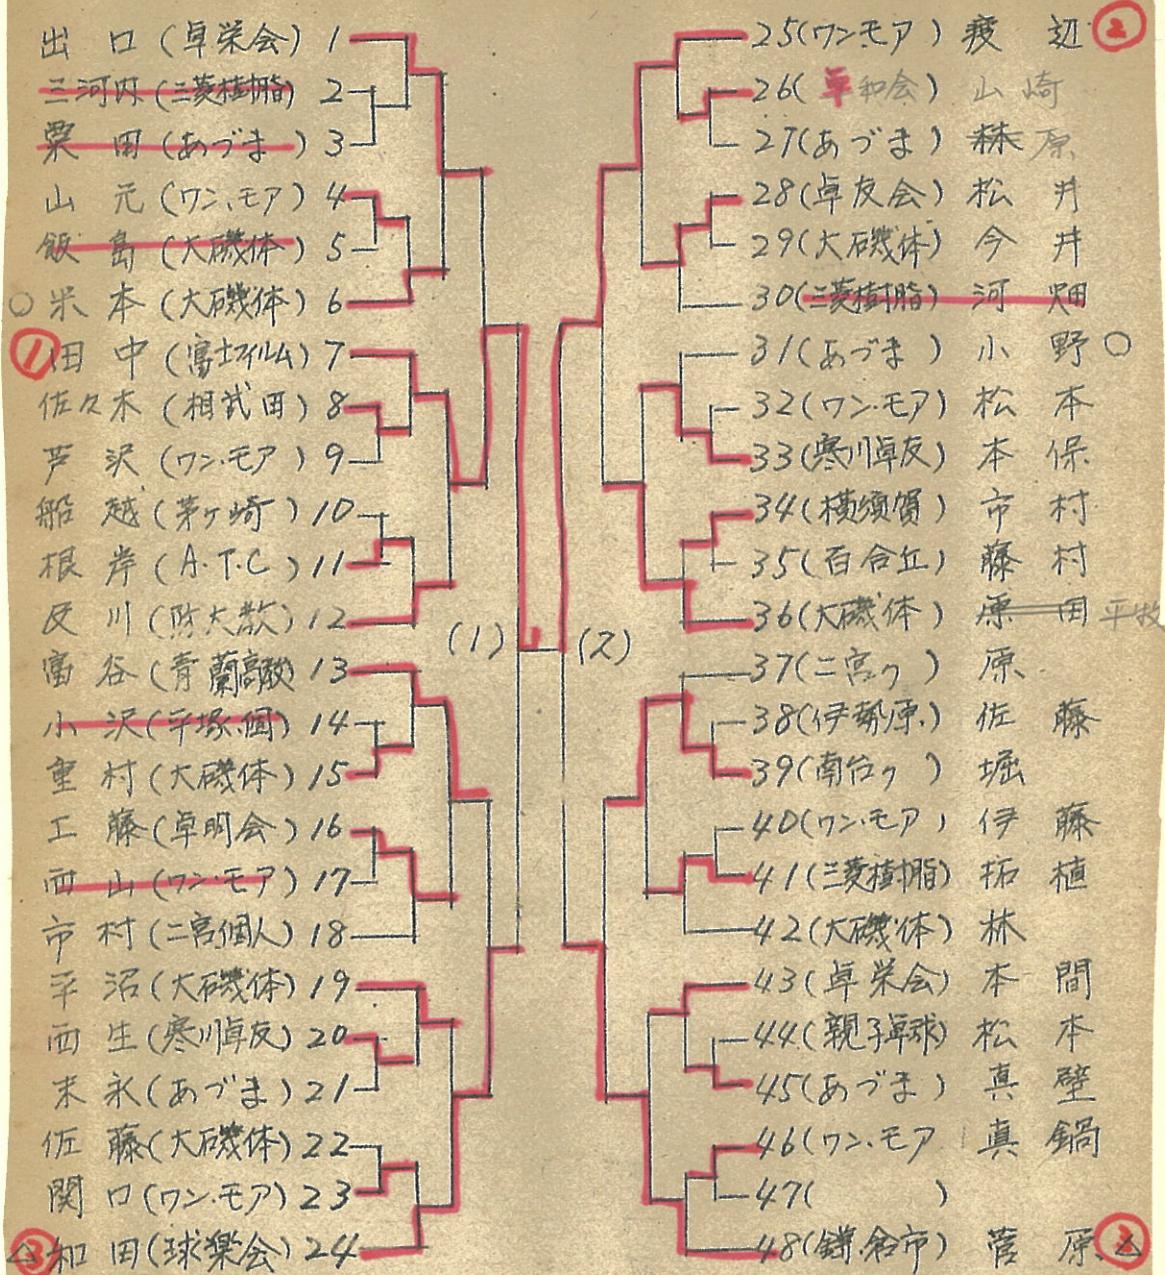 出口(卓栄会)1
三河内(三菱樹脂)2
粟田(あづま)3
山元(ワン.モア)4
飯島(大磯体)5
○米本(大磯体)6
①田中(富士フィルム)7
佐々木(相武田)8
芦沢(ワン.モア)9
船越(茅ヶ崎)10
根岸(A.T.C)11
及川(防大教)12
富谷(青蘭高教)13
小沢(平塚.個)14
重村(大磯体)15
工藤(卓明会)16
西山(ワン.モア)17
市村(二宮個人)18
平沼(大磯体)19
西生(寒川卓友)20
末永(あづま)21
佐藤(大磯体)22
関口(ワン.モア)23
△③和田(球楽会)24
(1)
(2)
25(ワン.モア)渡辺②
26(卓和会)山崎
27(あづま)林原
28(卓友会)松井
29(大磯体)今井
30(三菱樹脂)河畑
31(あづま)小野○
32(ワン.モア)松本
33(寒川卓友)本保
34(横須賀)市村
35(百合丘)藤村
36(大磯体)原田平牧
37(二宮ク)原
38(伊勢原.)佐藤
39(南台ク)堀
40(ワン.モア)伊藤
41(三菱樹脂)柘植
42(大磯体)林
43(卓栄会)本間
44(親子卓球)松本
45(あづま)真壁
46(ワン.モア 真鍋
47( )
48(鎌倉市)菅原③△